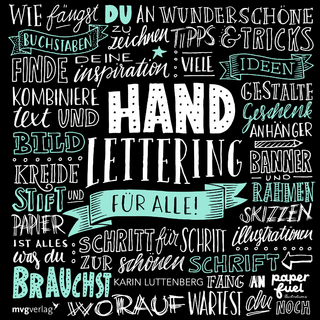 WIE fängst DU AN WUNDERSCHÖNE
BUCHSTABEN zu zeichnen TIPPS & TRICKS
FINDE DEINE inspiration VIELE IDEEN
KOMBINIERE text UND BILD
HAND
LETTERING
FÜR ALLE!
GESTALTE
Geschenk
ANHÄNGER
BANNER
UND
RAHMEN
SKIZZEN
KREIDE
STIFT und
PAPIER
IST ALLES
was du
BRAUCHST
SCHRITT für SCHRITT illustrationen
ZUR schönen SCHRIFT
KARIN LUTTENBERG
FANG AN
paper fuel
mvgverlag
WORAUF WARTEST du NOCH